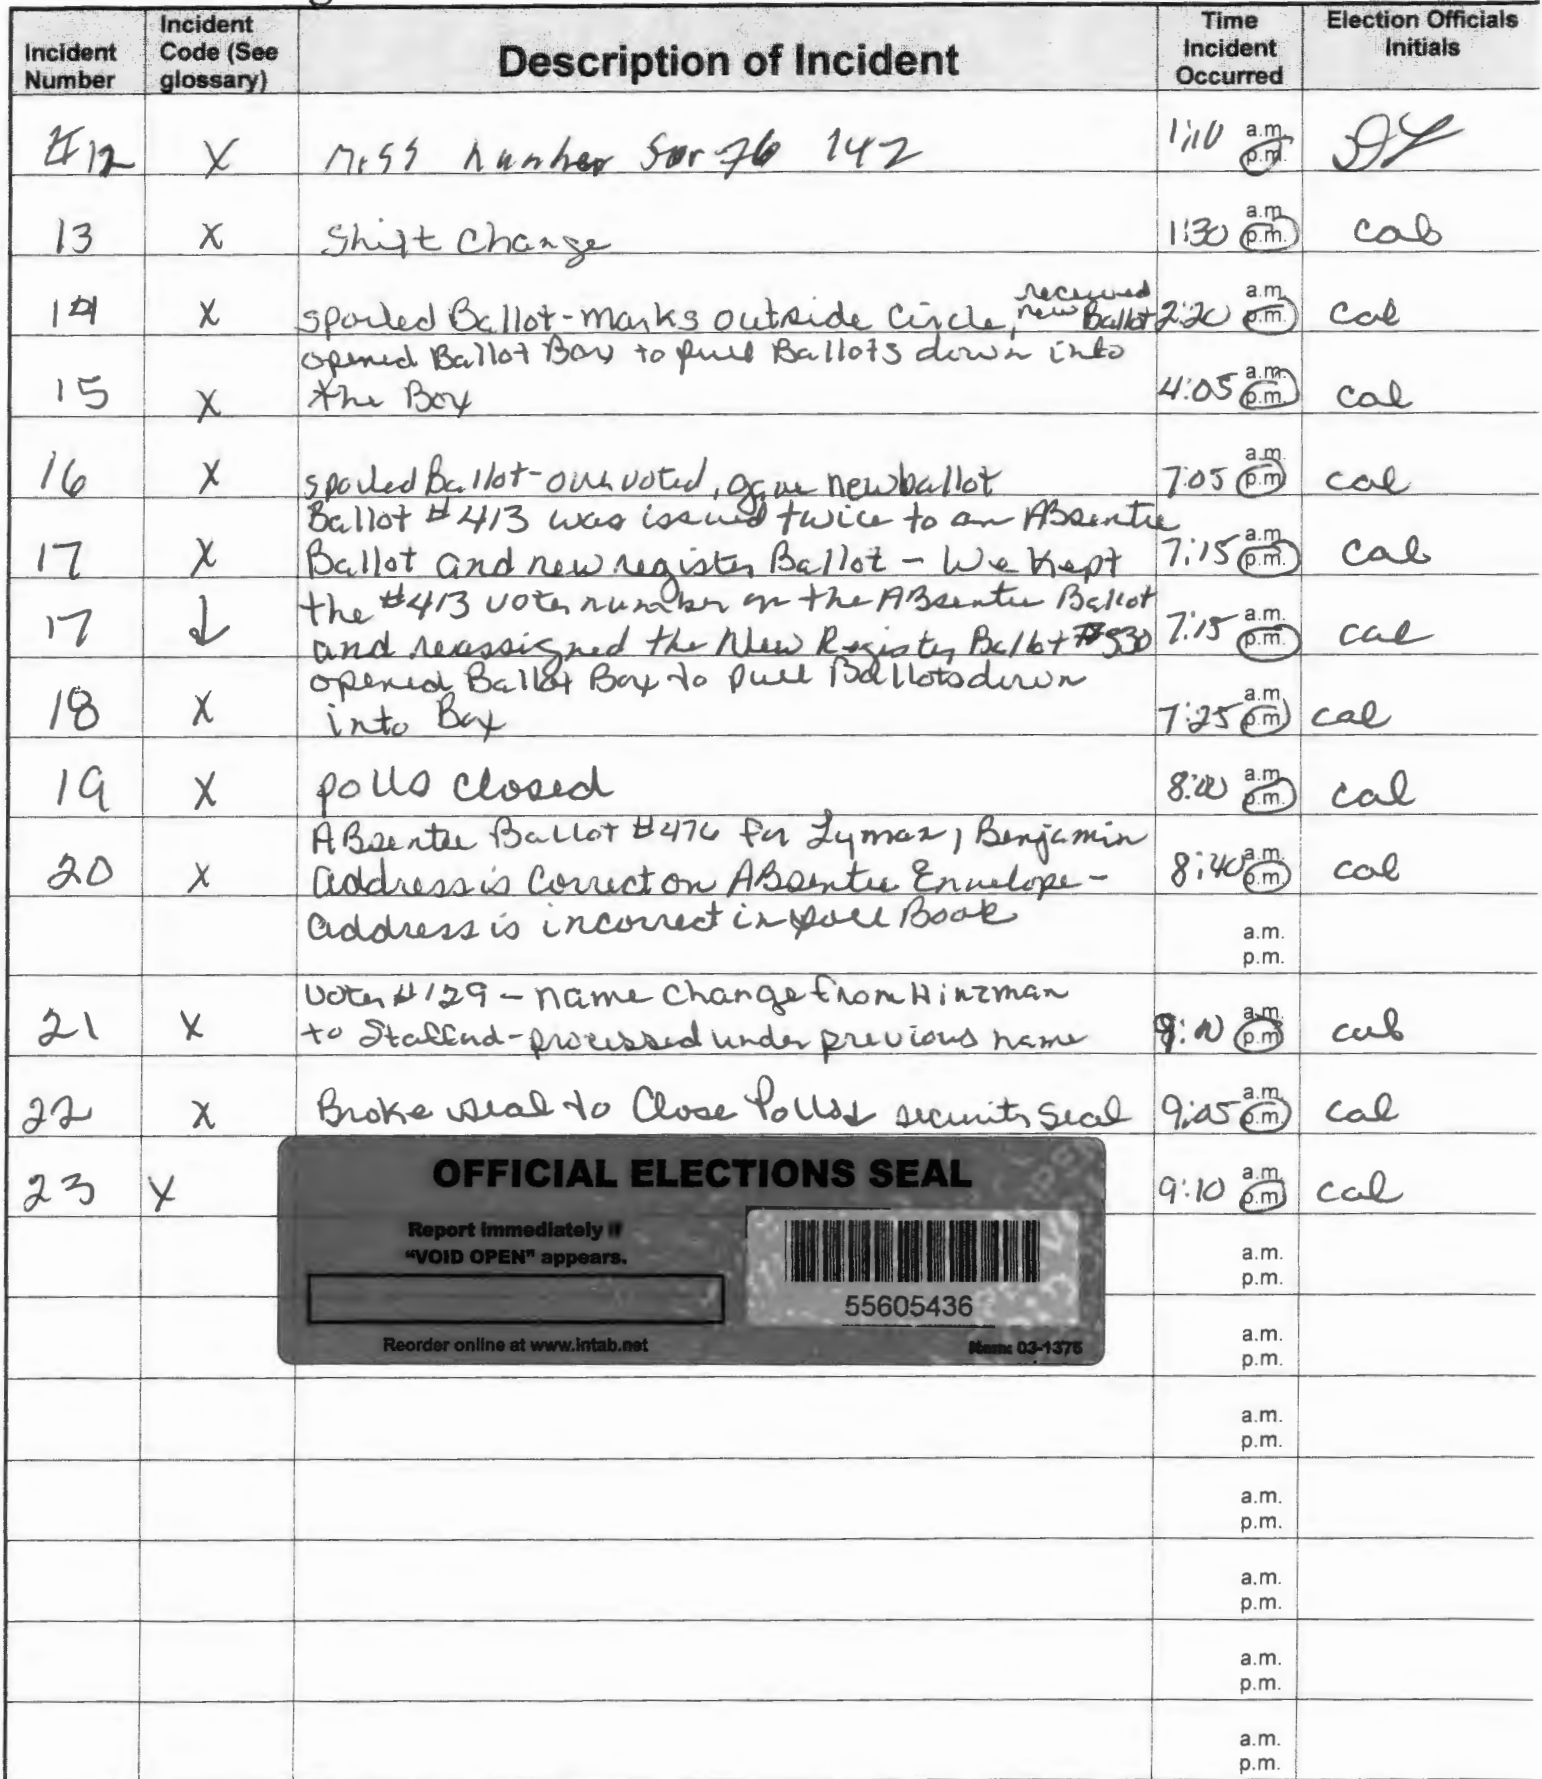 Incident Number
Incident Code (See glossary)
Description of Incident
Time Incident Occurred
Election Officials Initials
#12 X Miss number for 76 142 1:10 a.m. p.m.
13 X Shift Change 1:30 a.m. p.m. cab
14 X spoiled Ballot - marks outside circle, received new Ballot 2:20 a.m. p.m. cal
opened Ballot Box to pull Ballots down into
15 X the Box 4:05 a.m. p.m. cal
16 X spoiled Ballot - over voted, gave new ballot 7:05 a.m. p.m. cal
Ballot #413 was issued twice to an ABsentee
17 X Ballot and new register Ballot - We Kept 7:15 a.m. p.m. cab
the #413 voter number on the ABsentee Ballot
17 ↓ and reassigned the New Register Ballot #530 7:15 a.m. p.m. cal
opened Ballot Box to pull Ballots down
18 X into Box 7:25 a.m. p.m. cal
19 X polls closed 8:00 a.m. p.m. cal
ABsentee Ballot #476 for Lyman, Benjamin
20 X address is Correct on ABsentee Envelope - 8:40 a.m. p.m. cal
address is incorrect in poll Book a.m. p.m.
Voter #129 - name change from Hinzman
21 X to Stafford - processed under previous name 9:00 a.m. p.m. cab
22 X Broke seal to Close Polls & security seal 9:05 a.m. p.m. cal
23 X 9:10 a.m. p.m. cal
OFFICIAL ELECTIONS SEAL
Report immediately if
"VOID OPEN" appears.
55605436
Reorder online at www.intab.net
Item: 03-1375
a.m.
p.m.
a.m.
p.m.
a.m.
p.m.
a.m.
p.m.
a.m.
p.m.
a.m.
p.m.
a.m.
p.m.